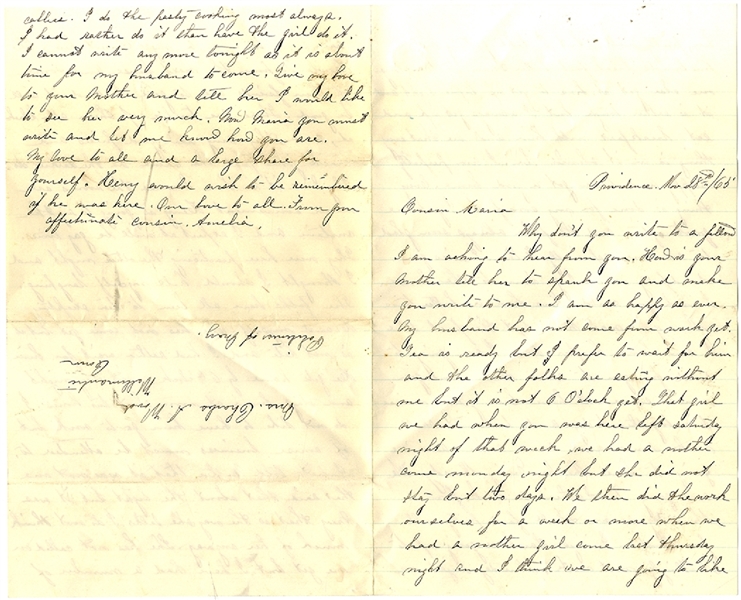 Providence. Nov 28th/65
Cousin Maria
Why don't you write to a fellow
I am aching to hear from you. How is your
Mother tell her to spank you and make
you write to me. I am as happy as ever.
My husband has not come from work yet.
Tea is ready but I prefer to wait for him
and the other folks are eating without
me but it is not 6 O'clock yet. That girl
we had when you was here left saturday
night of that week, we had a nother
come monday night but she did not
stay but two days. We then did the work
ourselves for a week or more when we
had a nother girl come last thursday
night and I think we are going to like
I do the pastry cooking most always.
I had rather do it than have the girl do it.
I cannot write any more tonight as it is about
time for my husband to come. Give my love
to your Mother and tell her I would like
to see her very much. Now Maria you must
write and let me know how you are.
My love to all and a large share for
yourself. Henry would wish to be remembered
if he was here. Our love to all. From your
affectionate cousin. Amelia.
Mrs. Charles A. Wood
Willimantic
Conn
Politeness of Mary.